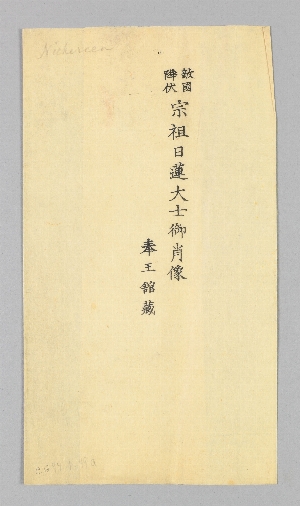 Nichiren
敵國
降伏
宗祖日蓮大士御肖像
奉王舘藏